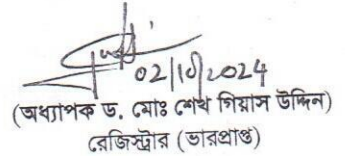 02/10/2024
(অধ্যাপক ড. মোঃ শেখ গিয়াস উদ্দিন)
রেজিস্ট্রার (ভারপ্রাপ্ত)